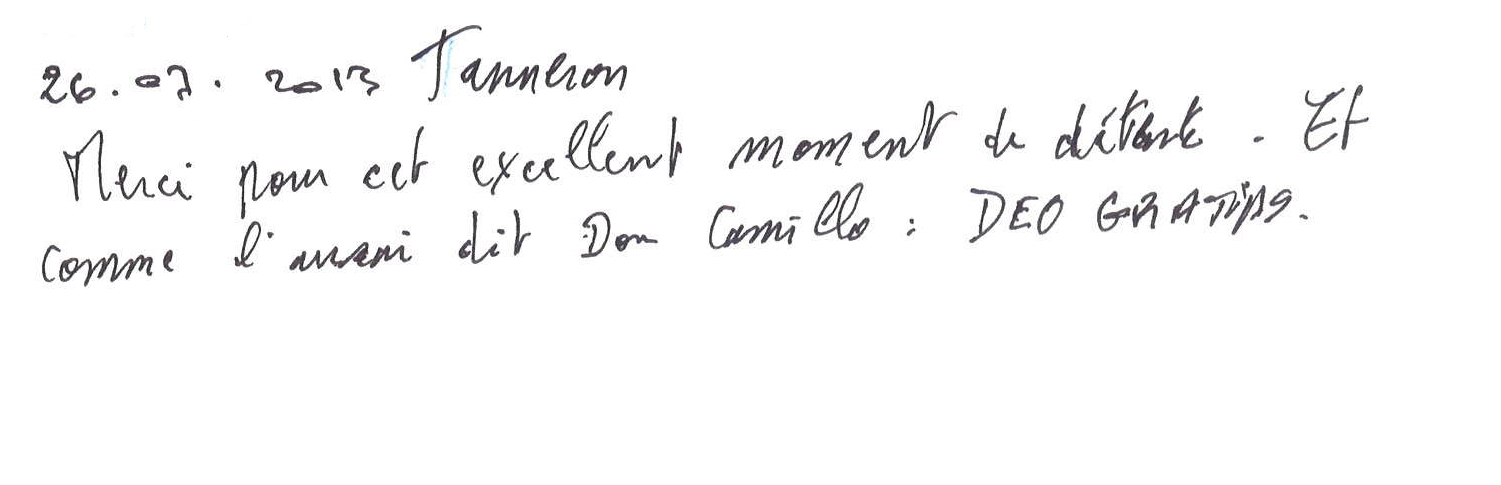 26.07.2013 Tanneron
Merci pour cet excellent moment de détente. Et
comme l'aurai dit Don Camillo : DEO GRATIAS.